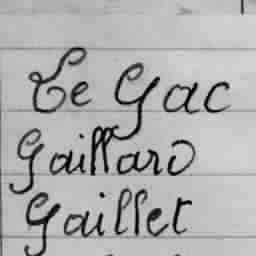 Le Gac
Gaillard
Gaillet